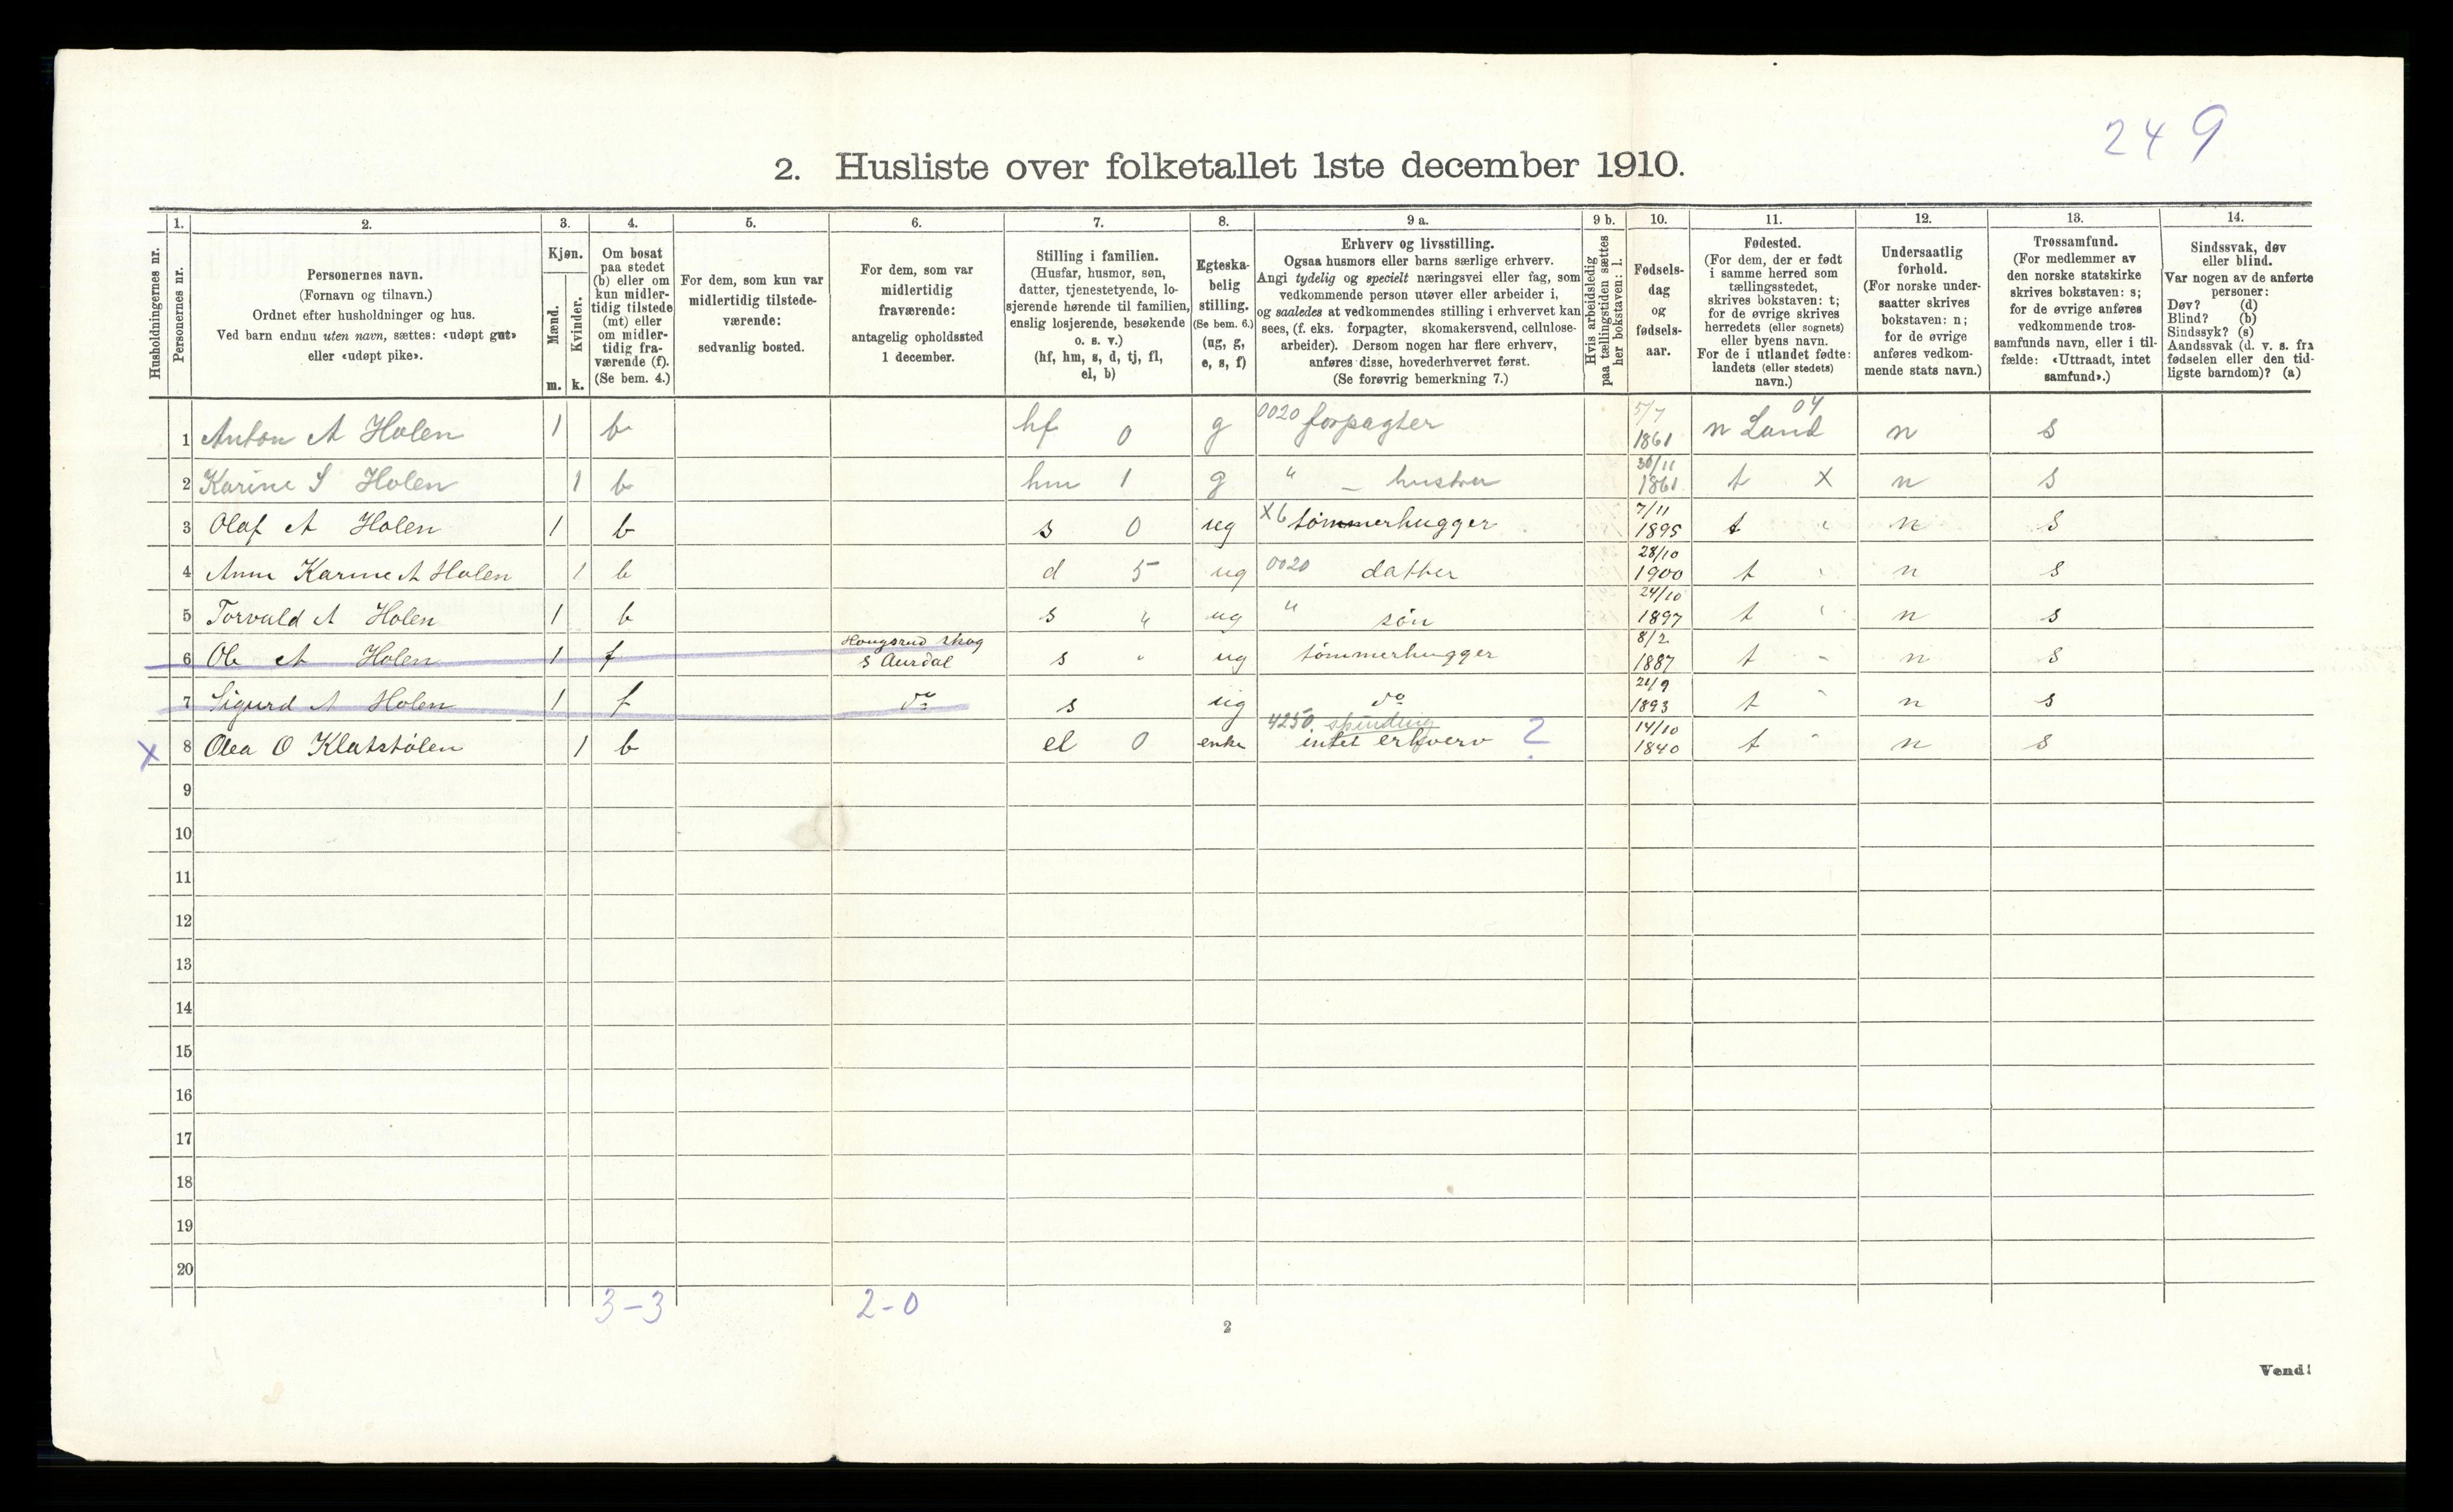 249
2. Husliste over folketallet 1ste december 1910.
1. 2. 3. 4. 5. 6. 7. 8. 9 a. 9 b. 10. 11. 12. 13. 14.
Husholdningernes nr.
Personernes nr.
Personernes navn.
(Fornavn og tilnavn.)
Ordnet efter husholdninger og hus.
Ved barn endnu uten navn, sættes: «udøpt gut»
eller «udøpt pike».
Kjøn.
Mænd.
Kvinder.
m. k.
Om bosat
paa stedet
(b) eller om
kun midler-
tidig tilstede
(mt) eller
om midler-
tidig fra-
værende (f).
(Se bem. 4.)
For dem, som kun var
midlertidig tilstede-
værende:
sedvanlig bosted.
For dem, som var
midlertidig
fraværende:
antagelig opholdssted
1 december.
Stilling i familien.
(Husfar, husmor, søn,
datter, tjenestetyende, lo-
sjerende hørende til familien,
enslig losjerende, besøkende
o. s. v.)
(hf, hm, s, d, tj, fl,
el, b)
Egteska-
belig
stilling.
(Se bem. 6.)
(ug, g,
e, s, f)
Erhverv og livsstilling.
Ogsaa husmors eller barns særlige erhverv.
Angi tydelig og specielt næringsvei eller fag, som
vedkommende person utøver eller arbeider i,
og saaledes at vedkommendes stilling i erhvervet kan
sees, (f. eks. forpagter, skomakersvend, cellulose-
arbeider). Dersom nogen har flere erhverv,
anføres disse, hovederhvervet først.
(Se forøvrig bemerkning 7.)
Hvis arbeidsledig
paa tællingstiden sættes
her bokstaven: l.
Fødsels-
dag
og
fødsels-
aar.
Fødested.
(For dem, der er født
i samme herred som
tællingsstedet,
skrives bokstaven: t;
for de øvrige skrives
herredets (eller sognets)
eller byens navn.
For de i utlandet fødte:
landets (eller stedets)
navn.)
Undersaatlig
forhold.
(For norske under-
saatter skrives
bokstaven: n;
for de øvrige
anføres vedkom-
mende stats navn.)
Trossamfund.
(For medlemmer av
den norske statskirke
skrives bokstaven: s;
for de øvrige anføres
vedkommende tros-
samfunds navn, eller i til-
fælde: «Uttraadt, intet
samfund».)
Sindssvak, døv
eller blind.
Var nogen av de anførte
personer:
Døv? (d)
Blind? (b)
Sindssyk? (s)
Aandssvak (d. v. s. fra
fødselen eller den tid-
ligste barndom)? (a)
1 Anton A Holen 1 b hf 0 g 0020 forpagter 5/7 1861 n Land 04 n s
2 Karine S Holen 1 b hm 1 g " — hustru 30/11 1861 t X n s
3 Olaf A Holen 1 b s 0 ug X6 tømmerhugger 7/11 1895 t " n s
4 Anne Karine A Holen 1 b d 5 ug 0020 datter 28/10 1900 t " n s
5 Torvald A Holen 1 b s " ug " søn 24/10 1897 t " n s
6 Ole A Holen 1 f Hougsrud skog
s Aurdal s " ug tømmerhugger 8/2 1887 t - n s
7 Sigurd A Holen 1 f do s ug do 21/9 1893 t " n s
X 8 Olea O Klatstølen 1 b el 0 enke 4250 spinding
intet erhverv ? 14/10 1840 t " n s
9
10
11
12
13
14
15
16
17
18
19
20
3-3 2-0
2
Vend!